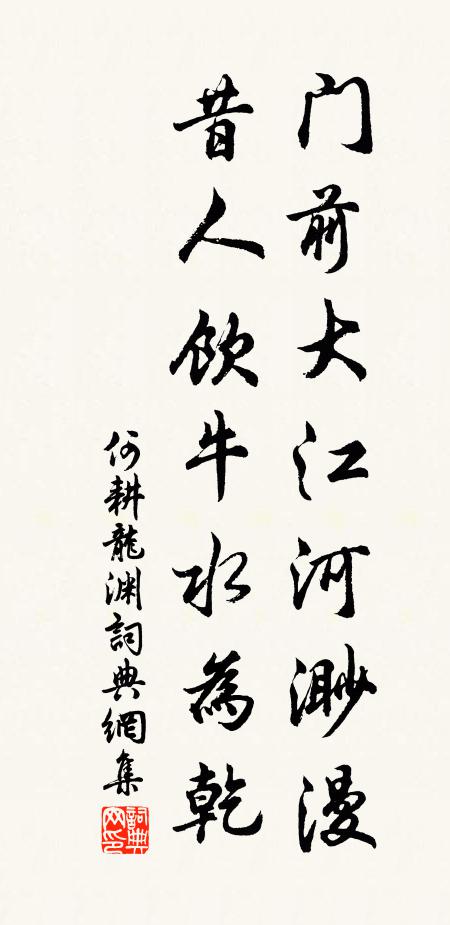 门前大江河渺漫
昔人饮牛水为乾
何耕龍渊詞典網集
詞典网印